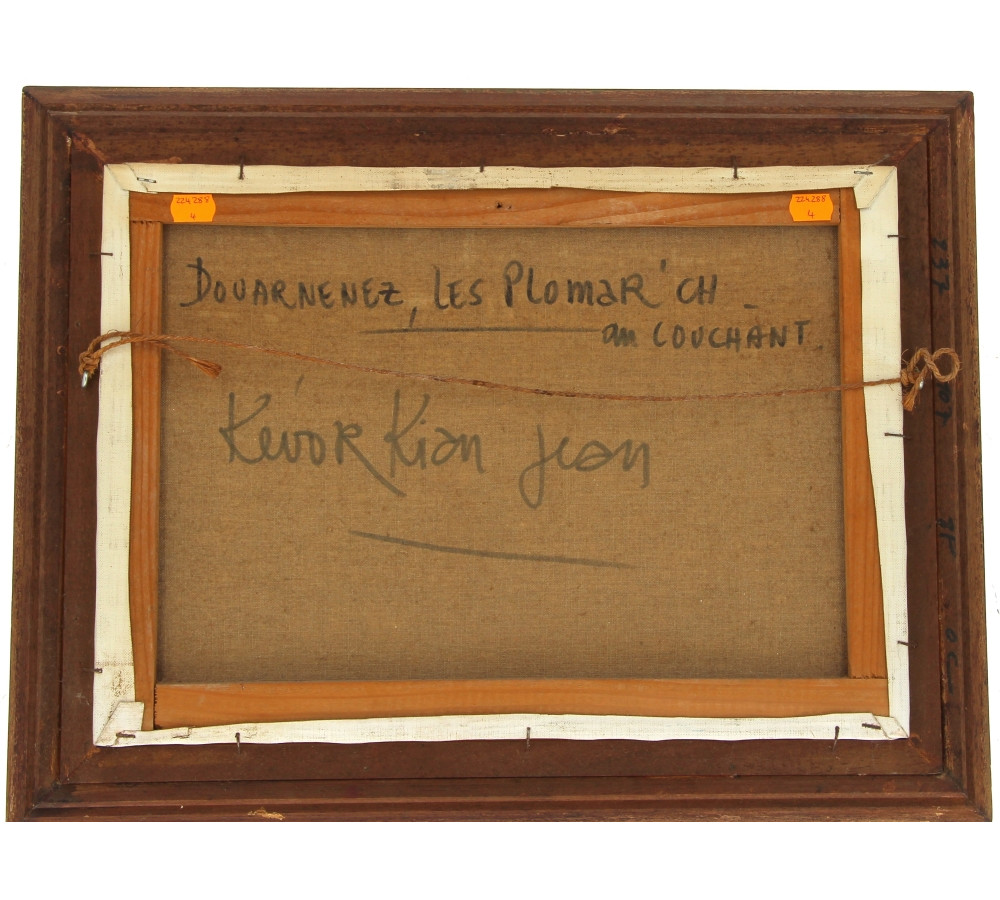 224288
4
224288
4
DOUARNENEZ, LES PLOMAR'CH _
au COUCHANT
KévorKian Jean
237